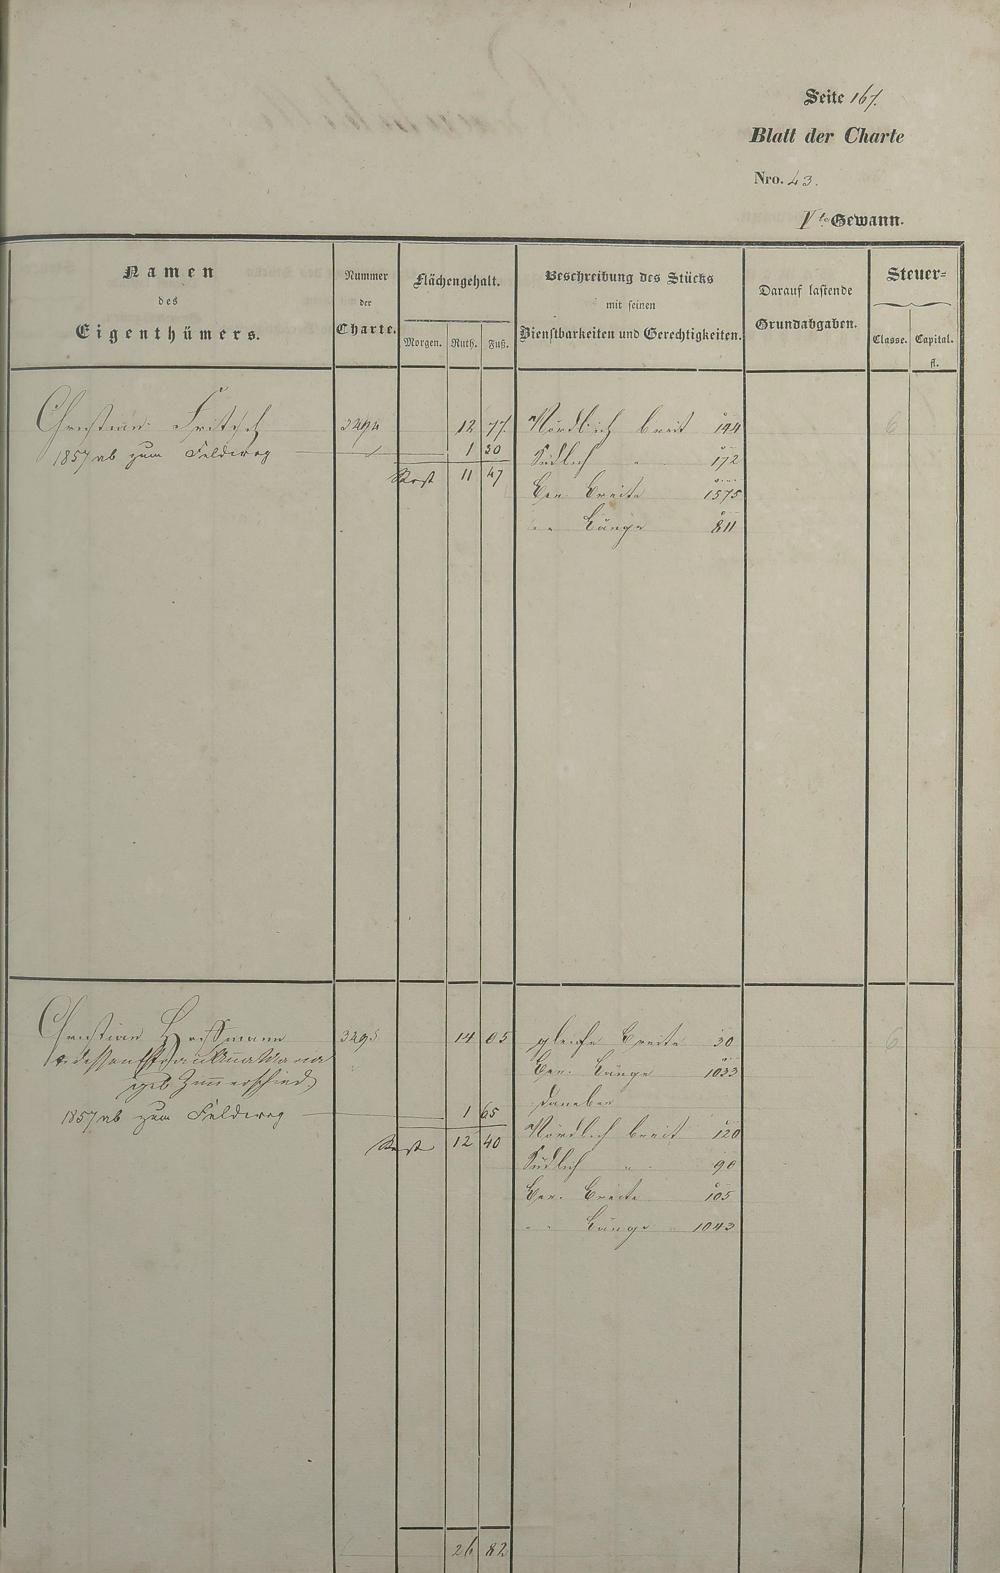 Seite 167.
Blatt der Charte
Nro. 43.
Vte Gewann.
Namen
des
Eigenthümers.
Nummer
der
Charte.
Flächengehalt.
Morgen. Ruth. Fuß.
Beschreibung des Stücks
mit seinen
Dienstbarkeiten und Gerechtigkeiten.
Darauf lastende
Grundabgaben.
Steuer-
Classe. Capital.
fl.
Christian Fritsch 3294 12 77. Nördlich breit 194 6
1857 ab zum Feldweg 1 30 Südlich " 172
Rest 11 47 Ger. Breite 1575
" Länge 811
Christian Hoffmann 3295 14 05 gleiche Breite 30 6
& dessen Ehefrau Anna Maria Ger. Länge 1033
geb Zimmerschied daneben
1857 ab zum Feldweg 1 65 Nördlich breit 120
Rest 12 40 Südlich " 90
Ger. Breite 105
" Länge 1043
26 82